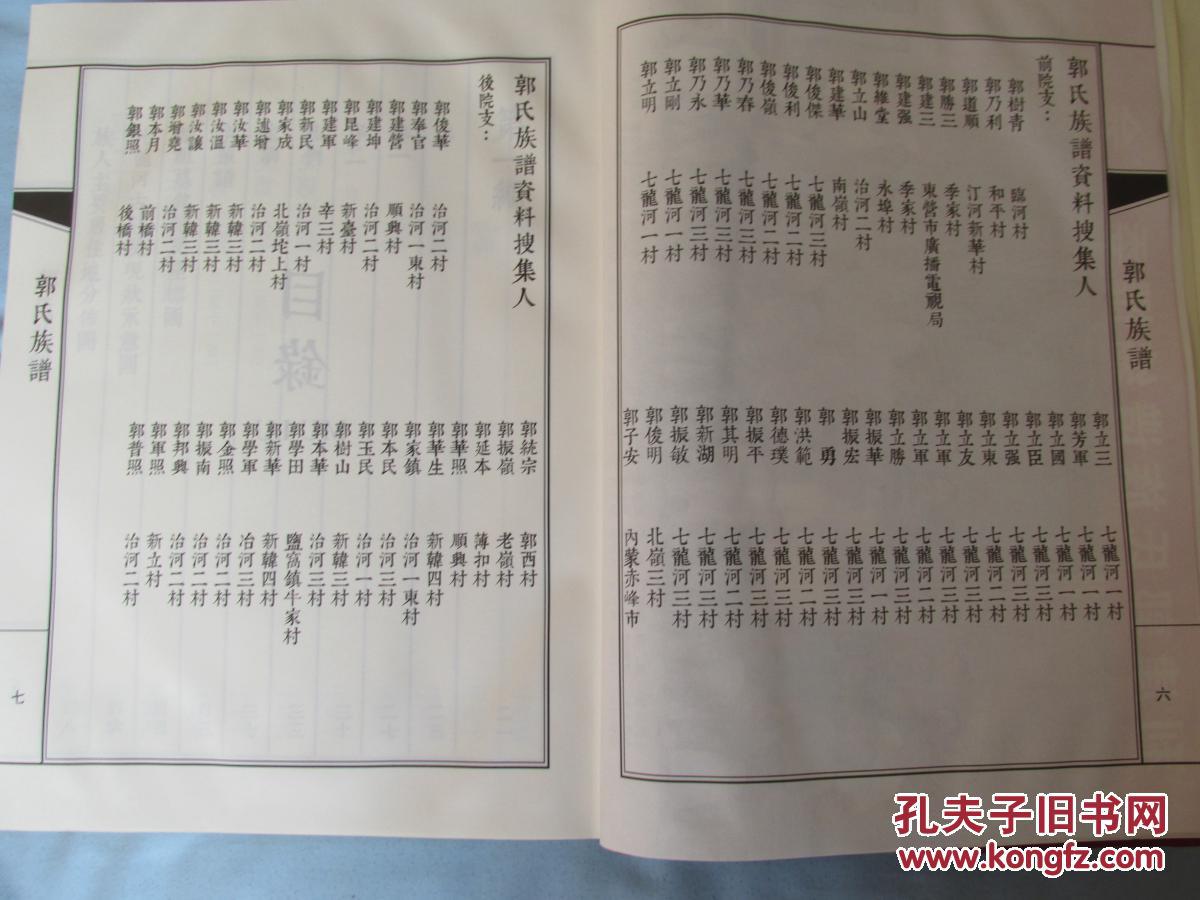 郭氏族譜
六
郭氏族譜資料搜集人
前院支：
郭樹青 臨河村
郭乃利 和平村
郭道順 汀河新華村
郭勝三 季家村
郭建三 東營市廣播電視局
郭建强 季家村
郭維堂 永埠村
郭立山 治河二村
郭建華 南嶺村
郭俊傑 七龍河三村
郭俊利 七龍河一村
郭俊嶺 七龍河二村
郭乃春 七龍河三村
郭乃華 七龍河三村
郭乃永 七龍河三村
郭立剛 七龍河一村
郭立明 七龍河一村
郭立三 七龍河一村
郭芳軍 七龍河一村
郭立國 七龍河一村
郭立臣 七龍河三村
郭立强 七龍河三村
郭立東 七龍河三村
郭立友 七龍河二村
郭立軍 七龍河三村
郭立軍 七龍河二村
郭立勝 七龍河二村
郭振華 七龍河一村
郭振宏 七龍河三村
郭勇 七龍河三村
郭洪範 七龍河二村
郭德璞 七龍河三村
郭振平 七龍河三村
郭其明 七龍河二村
郭新湖 七龍河三村
郭振敏 七龍河三村
郭俊明 北嶺三村
郭子安 內蒙赤峰市
郭氏族譜資料搜集人
後院支：
郭俊華 治河二村
郭奉官 治河一東村
郭建營 順興村
郭建坤 治河二村
郭昆峰 新臺村
郭建軍 辛三村
郭新民 治河一村
郭家成 北嶺坨上村
郭逋增 治河二村
郭汝華 新韓三村
郭汝溫 新韓三村
郭汝讓 新韓三村
郭增堯 治河二村
郭本月 前橋村
郭銀照 後橋村
郭統宗 郭西村
郭振嶺 老嶺村
郭延本 薄扣村
郭華照 順興村
郭華生 新韓四村
郭家鎮 治河一東村
郭本民 治河三村
郭玉民 治河一村
郭樹山 新韓三村
郭本華 治河三村
郭學田 鹽窩鎮牛家村
郭新華 新韓四村
郭學軍 冶河三村
郭金照 治河二村
郭振南 治河二村
郭邦興 治河二村
郭軍照 新立村
郭普照 治河二村
郭氏族譜
七
孔夫子旧书网
www.kongfz.com